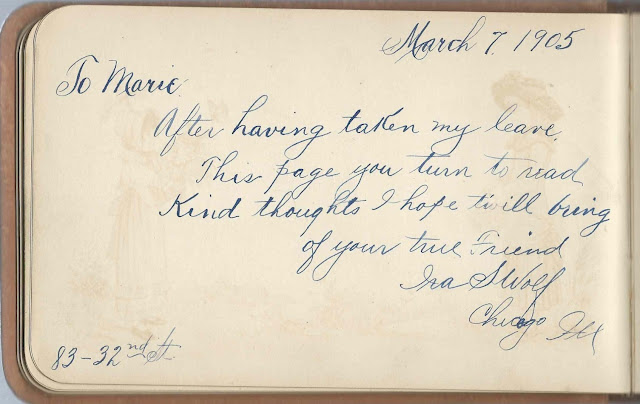 March 7, 1905
To Marie.
After having taken my leave.
This page you turn to read
Kind thoughts I hope twill bring
of your true Friend
Ira S Wolf
Chicago Ill
83-32nd St.